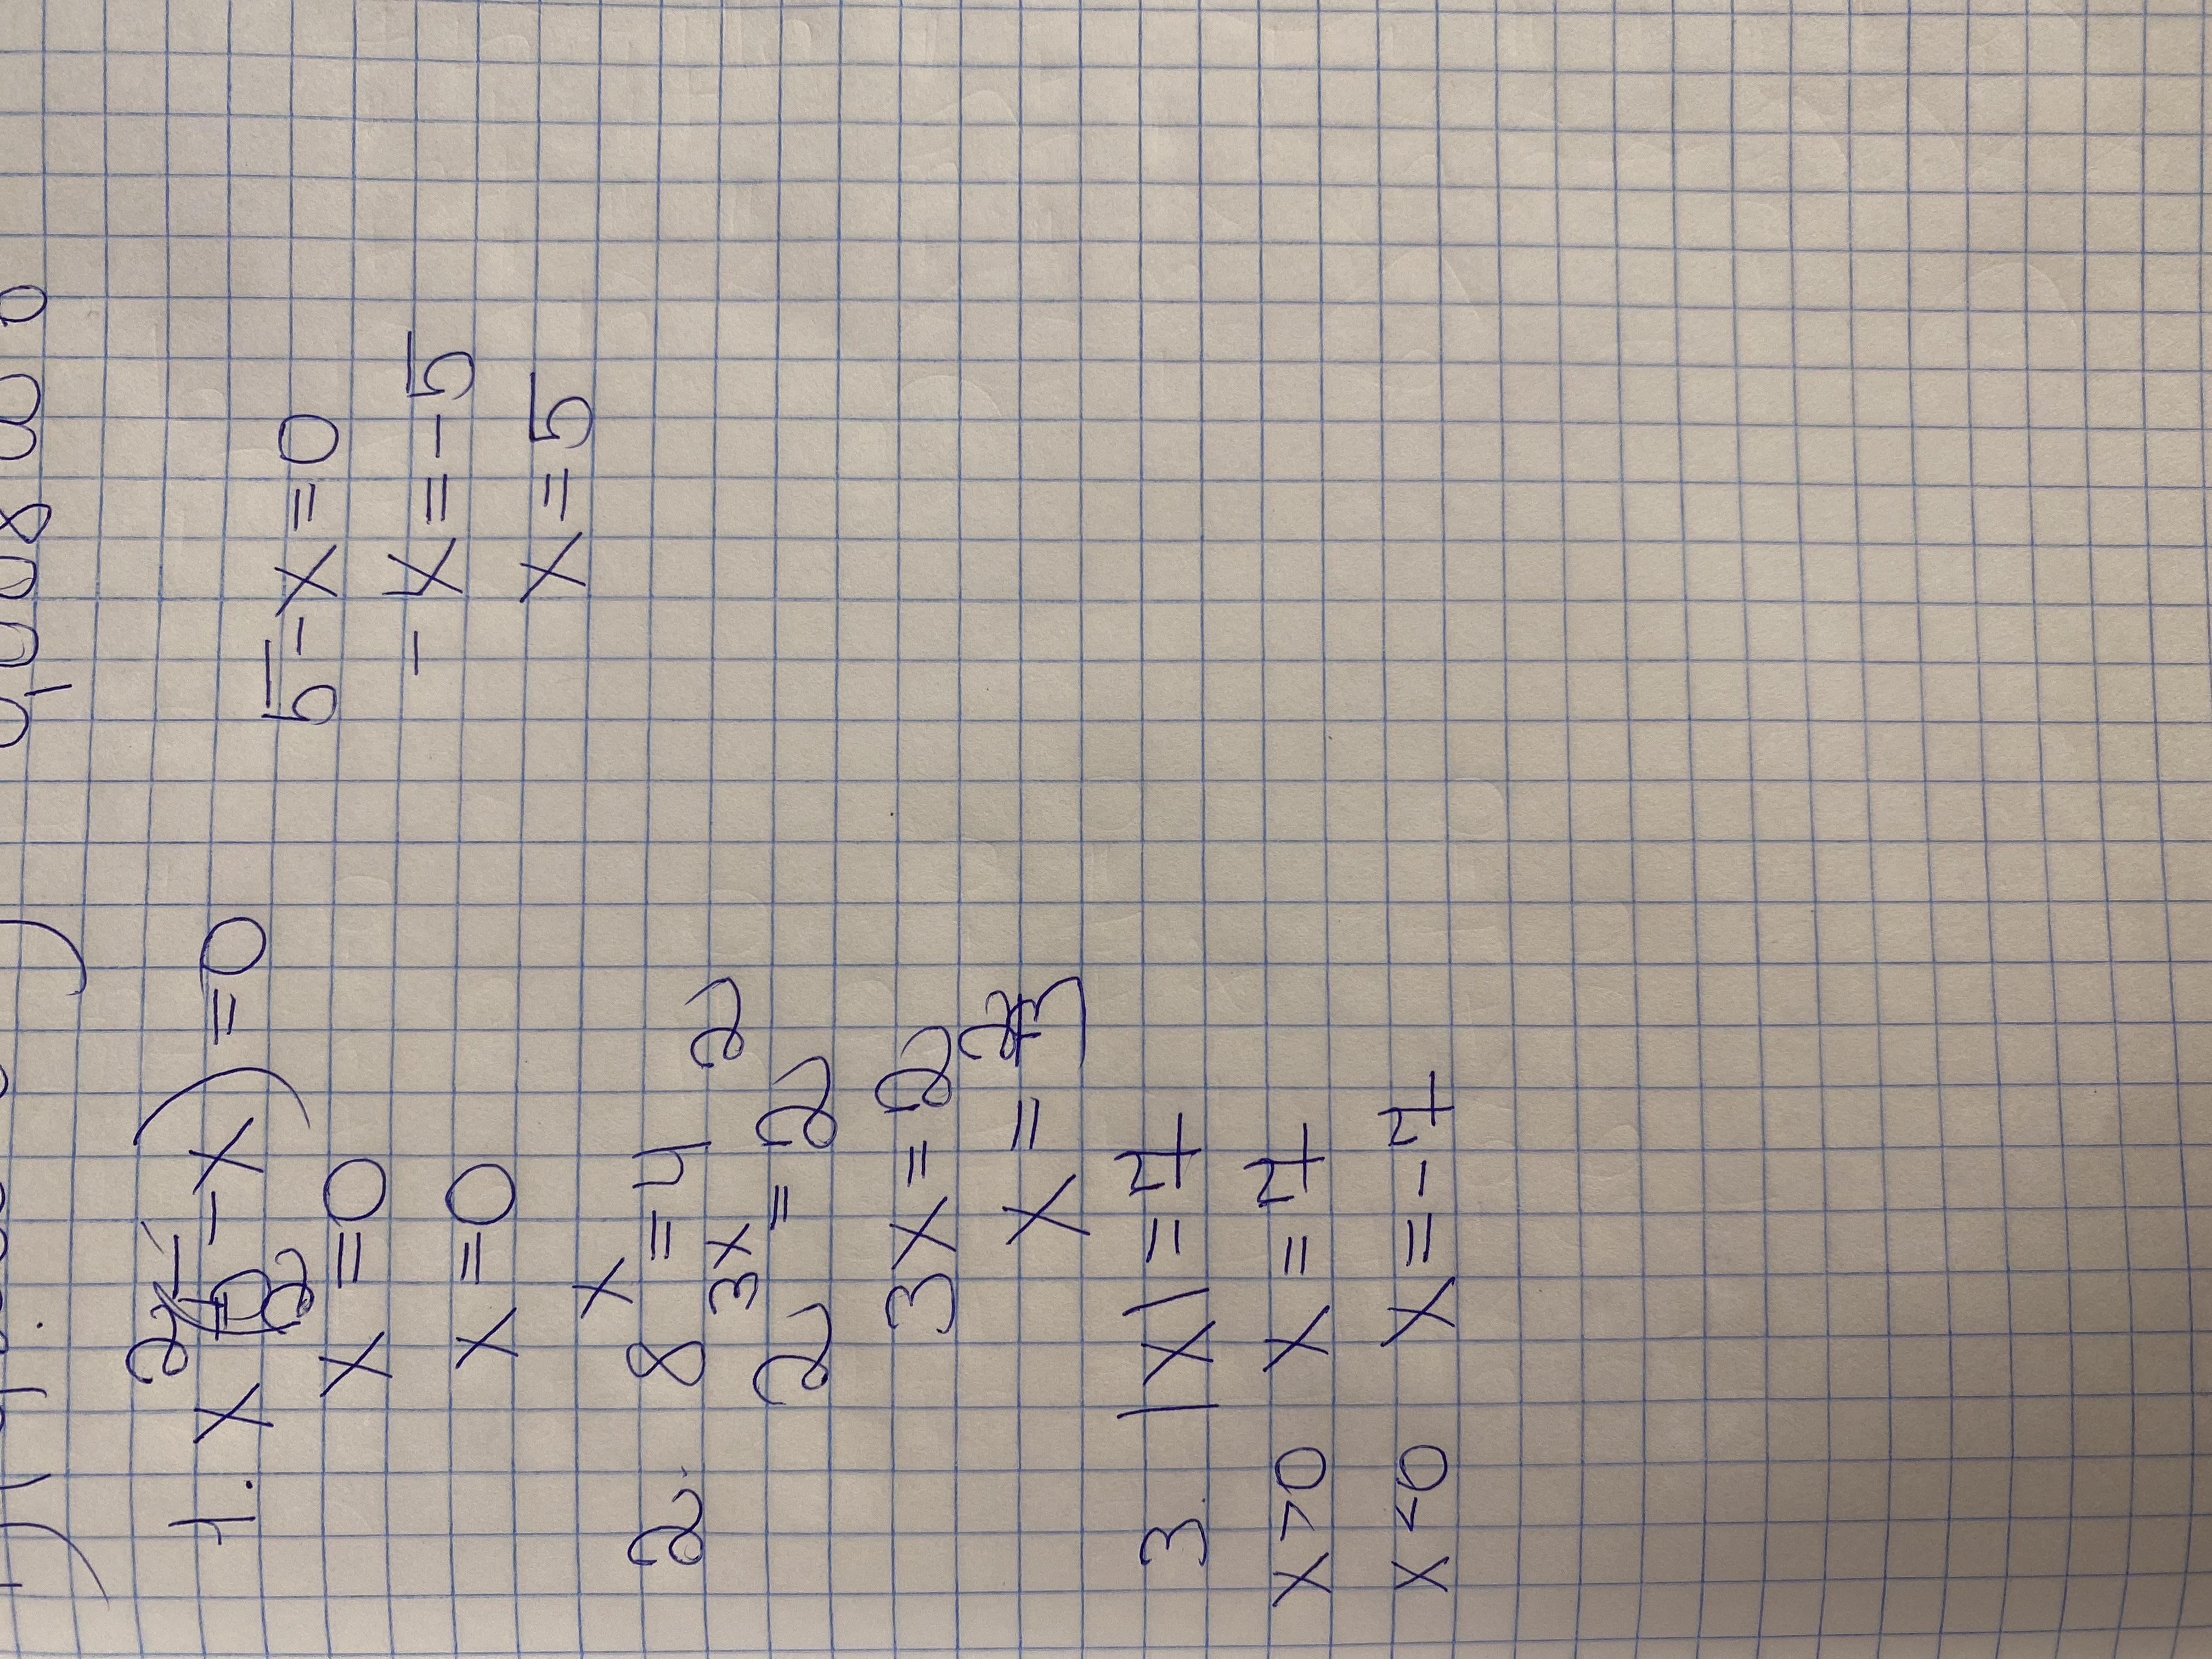 1. x²(5-x)=0
x²=0 5-x=0
x=0 -x=-5
x=5
2. 8ˣ=4
2³ˣ=2²
3x=2
x=2/3
3. |x|=7
x>0 x=7
x<0 x=-7